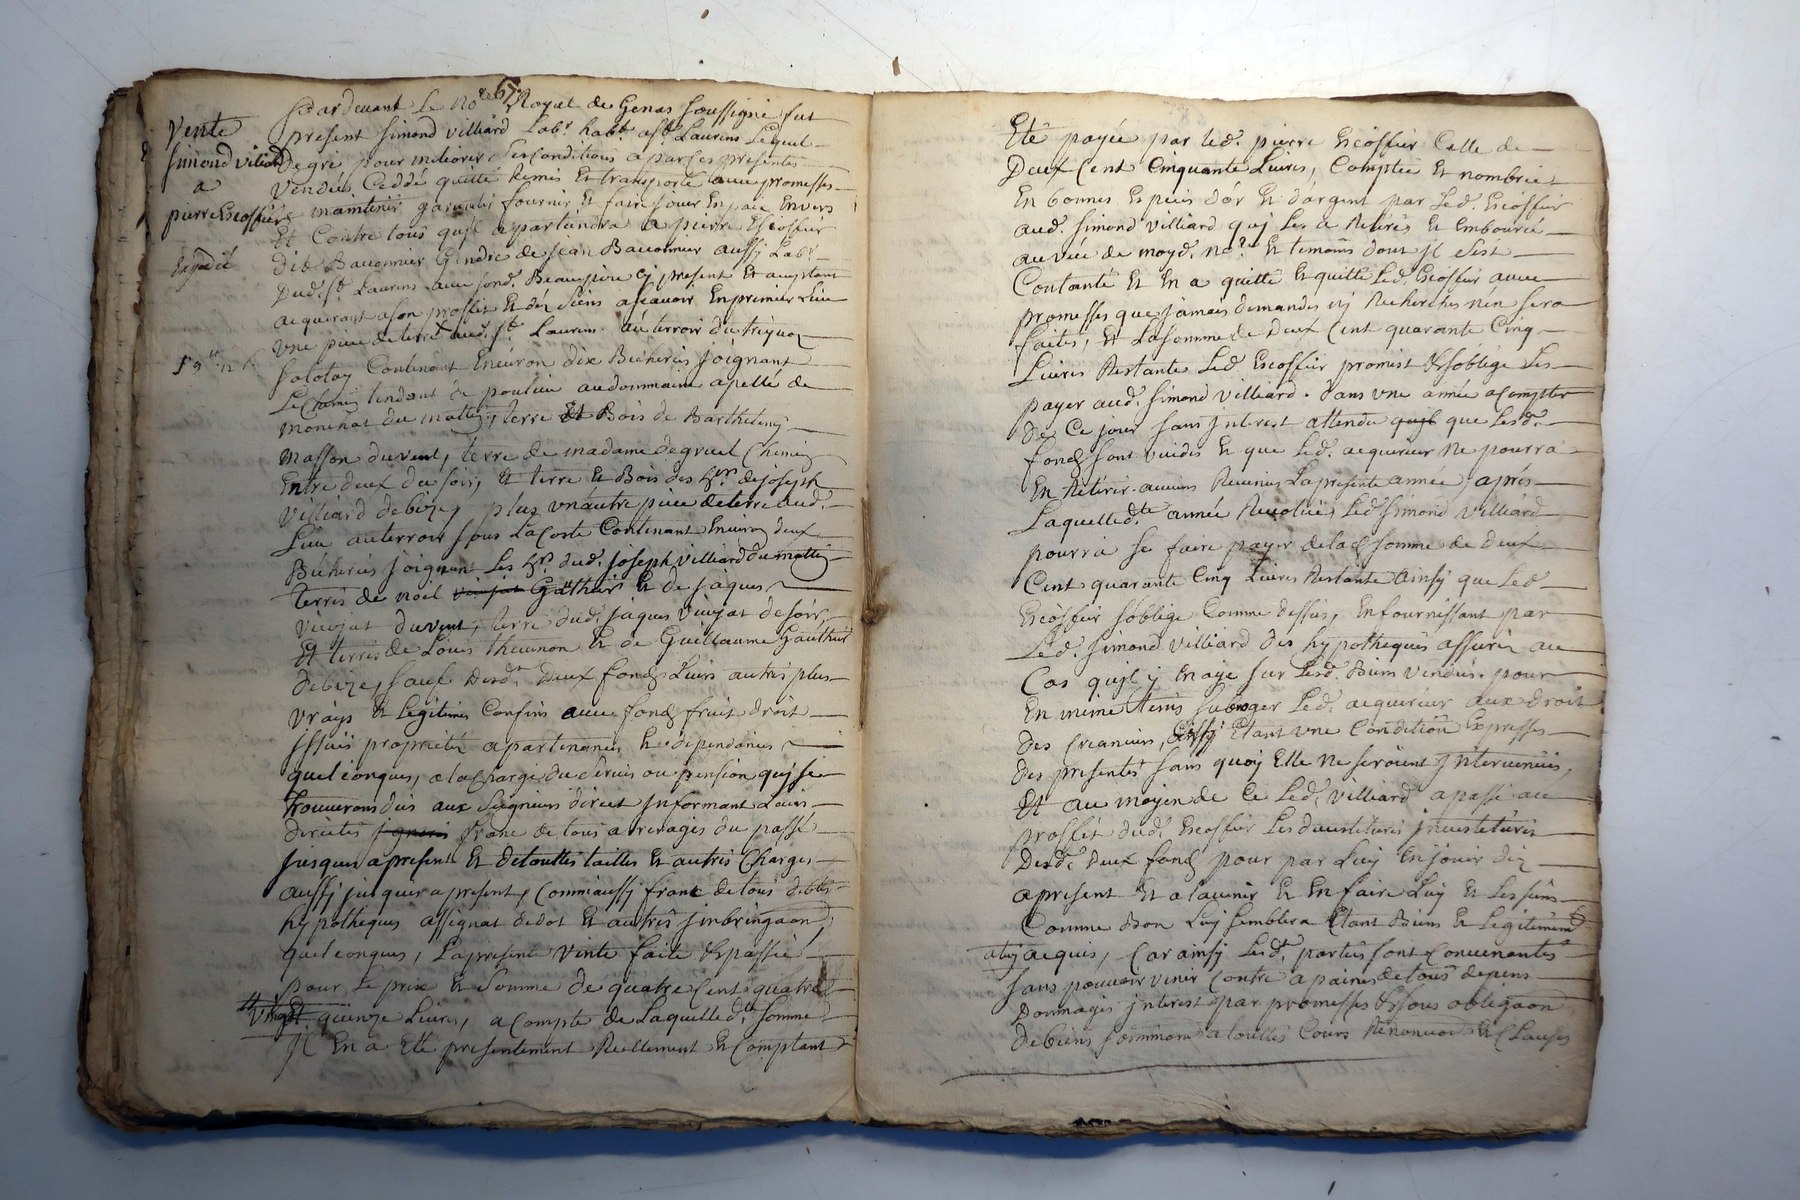 67
Vente
Simond viliard
a
pierre Escoffier
Expedié
59# 12 s
Pardevant Le No.re Royal de Genas soussigné fut
present Simond villiard Lab.r hab.t a s.t Laurens Lequel
Degré pour meliorer ses conditions a par ses presentes
Vendu, Ceddé quitté Remis Et transporté avec promesses
de maintenir garentir fournir Et faire jouir En paix Envers
Et Contre tous qu'jl apartiendra a pierre Escoffier
Dit Bauonnier Gendre de jean Bauonnier aussy Lab.r
Dud. s.t Laurens avec sond. Beaupere Cy present Et acceptant
acquerant a son proffit Et des siens ascavoir En premier Lieu
Une piece de terre aud. s.t Laurens au terroir du
Contenant Environ dix Bicherées joignant
Le Chemin tendant de au dommaine apellé de
du mattin, terre Et Bois de Barthelemy
Masson du vent, terre de madame degruel Chemin
Entre deux du soir, Et terre Et Bois des h.rs de joseph
Villiard de bize, plus vn autre piece de terre aud.
Lieu au terroir sous La Coste Contenant Environ deux
Bicherées joignant Les h.rs dud. joseph villiard du mattin
terres de noël Gauthier Et de jaques
du vent, terre dud. jaques de soir,
Et terres de Louis thevenon Et de Guillaume Gauthier
de bize, sauf Desd.t Deux fonds Leurs autres plus
vrays Et Legitimes Confins avec fond fruit droit
jssües proprietés apartenances Et dependances
quelconques, a la Charge du Servis ou pension quj se
trouverons dües aux Seigneurs direct jnformant Leurs
directes franc de tous arrerages du passé
jusques a present Et de touttes tailles Et autres Charges
aussy jusques a present, Comm'aussy franc de tous debtes
hypotheques assignat de dot Et autres jmbringaõn
quelconques, La presente vente faite Et passée
pour Le prix Et somme de quatre Cent quatre
vingt quinze Livres, a Compte de Laquelle d.te somme
jl En a Eté presentement Reellement Et Comptant
Eté payée par led. pierre Escoffier Celle de
Deux Cent Cinquante Livres, Comptée Et nombrée
En bonnes Especes d'or Et d'argent par Led. Escoffier
aud. Simond villiard quj Les a Retirés Et Emboursé
au veüe de moyd. no.re Et temoins dont jl s'est
Contanté Et En a quitté Et quitte Led. Escoffier avec
promesses que jamais demandes nj Recherches n'en sera
faites, Et La somme de Deux Cent quarante Cinq
Livres Restante Led. Escoffier promest Et s'oblige Les
payer aud. Simond Villiard dans vne année a Compter
De Ce jour sans jnterest attendu quyl que Lesd.
fonds sont vuides Et que Led. acquereur ne pourra
En Retirer aucuns Revenus La presente année, aprés
Laquelle d.te année Revolüe Led. Simond Villiard
pourra se faire payer de lad. somme de Deux
Cent quarante Cinq Livres Restante ainsy que Led.
Escoffier s'oblige Comme dessus, En fournissant par
Led. Simond Villiard des hypotheques assurés au
Cas qujl y En aye sur Lesd. Biens Vendus pour
En même tems subroger Led. acquereur aux Droit
des Creanciers, Cecy Etant vne Condition Expresses
des presentes sans quoy Elle ne seroient jntervenües,
Et au moyen de Ce Led. Villiard a passé au
proffit dud. Escoffier Les devestitures jnvestitures
Desd.t deux fonds pour par Luy En jouir dez
apresent Et a l'avenir Et En faire Luy Et Les siens
Comme Bon Luy semblera Etant Biens Et Legitimement
a luy acquis, Car ainsy Lesd.t parties sont Convenantes
sans pouvoir venir Contre a paines de tous depens
Dommages jnterest par promesses Et sous obligaõn
De biens soummom a touttes Cours Renoncaõ Et Clauses